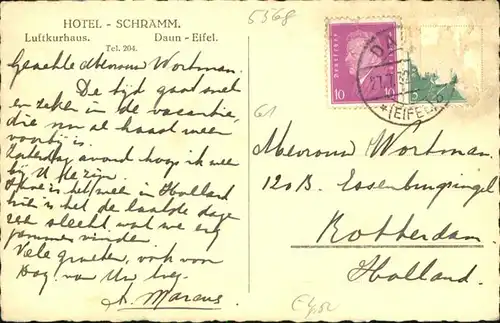 HOTEL - SCHRAMM.
Luftkurhaus. Daun - Eifel.
Tel. 204.
5368
Geachte Mevrouw Wortman.
De tijd gaat snel
en zeker in de vacantie,
die nu al haast weer
voorbij is.
Zaterdag avond hoop ik weer
bij U te zijn.
is het weer in Holland
hier is het de laatste dagen
zeer slecht, wat we erg
jammer vinden.
Vele groeten, ook voor
van Uw
A. Marcus
61
Deutsches Reich
10 10
5
DAUN
27.7.
*(EIFEL)
Mevrouw Wortman.
120 B. Essenburgsingel
Rotterdam
Holland.